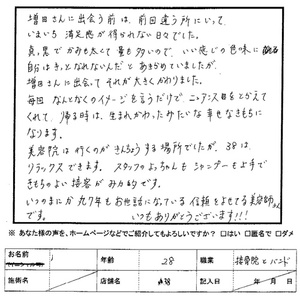 増田さんに出会う前は、前回違う所にいって、
いまいち満足感が得られない日々でした。
真黒でかみも太くて量も多いので、いい感じの色味に
自分はきっとなれないんだとあきらめていましたが、
増田さんに出会ってそれが大きくかわりました。
毎回なんとなくのイメージを言うだけで、ニュアンスをとらえて
くれて、帰る時は、生まれかわったみたいな幸せなきもちに
なります。
美容院は行くのがきんちょうする場所でしたが、38は、
リラックスできます。スタッフのよっちゃんもシャンプーも上手で
きもちのよい接客がみ力的です。
いつのまにか 九7年もお世話になっている信頼をよせてる美容師さん
です。いつもありがとうございます!!!
※ あなた様の声を、ホームページなどでご紹介してもよろしいですか? □はい □匿名で □ダメ
お名前 年齢 28 職業 接骨院とバンド
施術名 店舗名 38 記入日 年 月 日